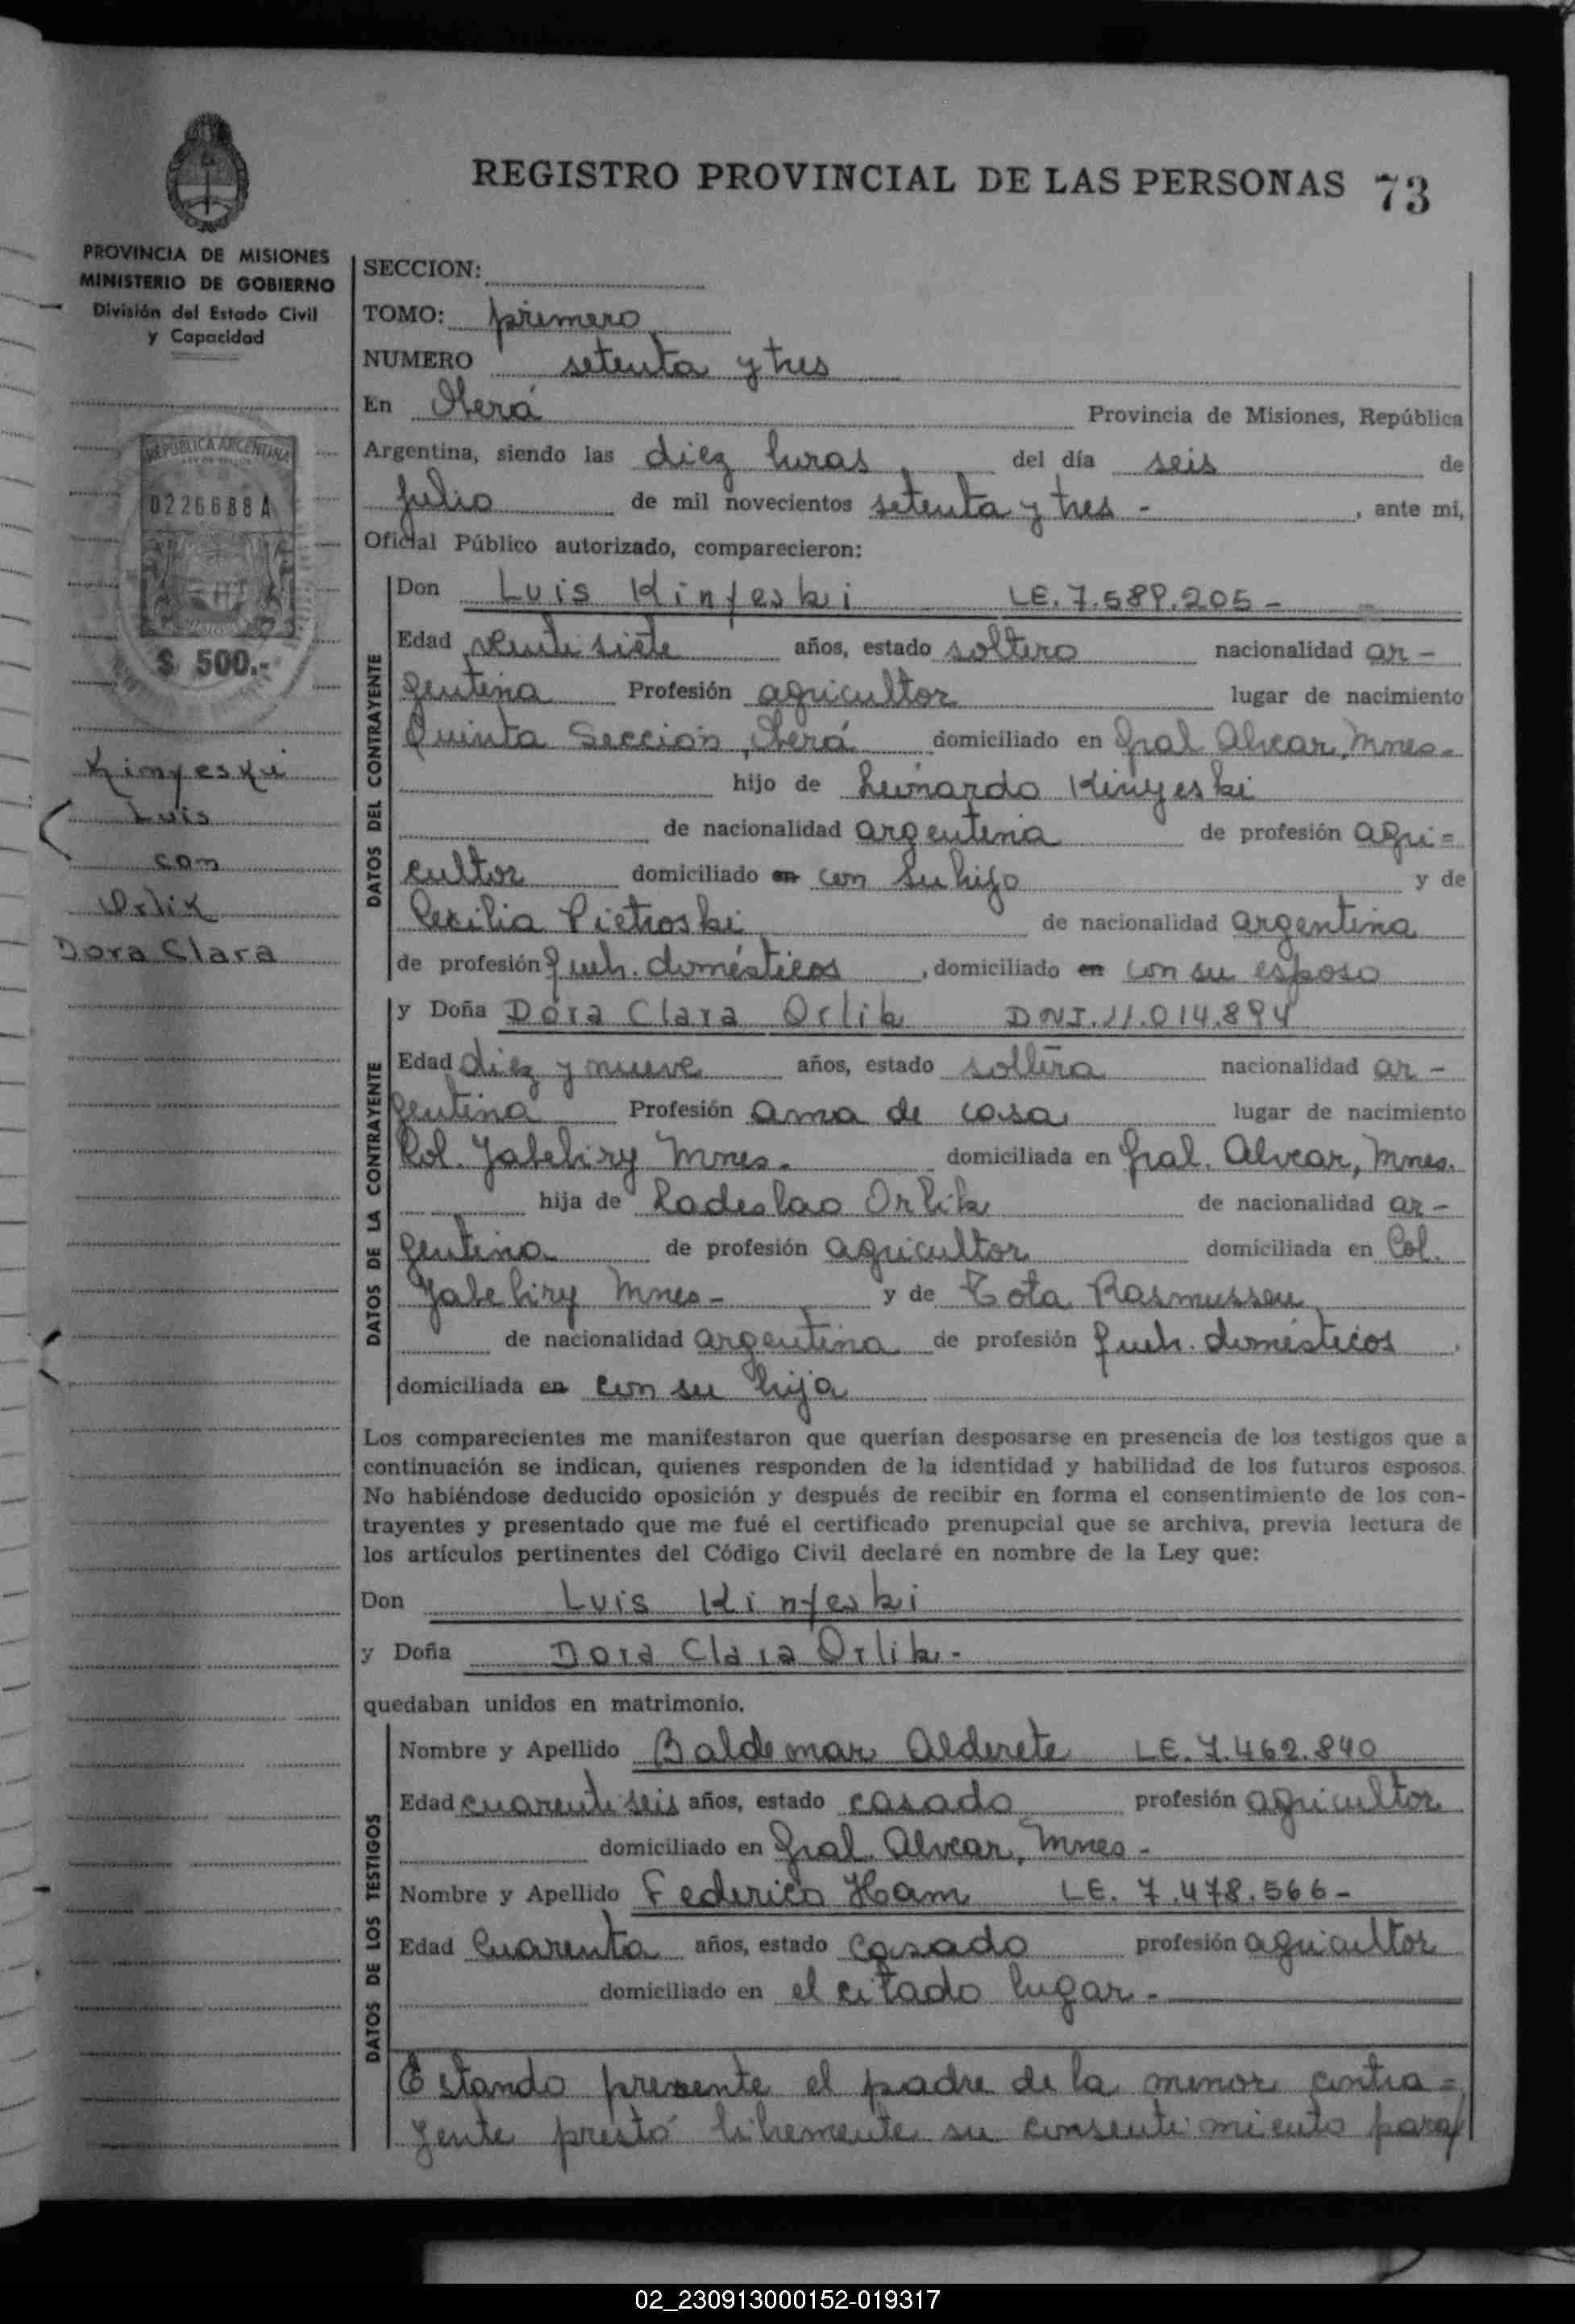 REGISTRO PROVINCIAL DE LAS PERSONAS 73
PROVINCIA DE MISIONES
MINISTERIO DE GOBIERNO
División del Estado Civil
y Capacidad
REPUBLICA ARGENTINA
0226688 A
$ 500.-
Kinyeski
Luis
con
Orlik
Dora Clara
SECCION:
TOMO: primero
NUMERO setenta y tres
En Oberá Provincia de Misiones, República
Argentina, siendo las diez horas, del día seis de
Julio de mil novecientos setenta y tres - , ante mi,
Oficial Público autorizado, comparecieron:
DATOS DEL CONTRAYENTE
Don Luis Kinyeski LE. 7.589.205-
Edad veinti siete años, estado soltero nacionalidad ar-
gentina Profesión agricultor lugar de nacimiento
Quinta Sección, Oberá domiciliado en Gral Alvear, Mnes-
hijo de Leonardo Kinyeski
de nacionalidad argentina de profesión agri=
cultor domiciliado en con su hijo y de
Cecilia Pietroski de nacionalidad argentina
de profesión queh. domésticos, domiciliado en con su esposo
DATOS DE LA CONTRAYENTE
y Doña Dora Clara Orlik DNI. 11.014.894
Edad diez y nueve años, estado soltera nacionalidad ar-
gentina Profesión ama de casa lugar de nacimiento
Col. Yabebiry Mnes. domiciliada en Gral. Alvear, Mnes.
hija de Ladeslao Orlik de nacionalidad ar-
gentina de profesión agricultor domiciliada en Col.
Yabebiry Mnes- y de Tota Rasmussen
de nacionalidad argentina de profesión queh. domésticos,
domiciliada en con su hija
Los comparecientes me manifestaron que querían desposarse en presencia de los testigos que a
continuación se indican, quienes responden de la identidad y habilidad de los futuros esposos.
No habiéndose deducido oposición y después de recibir en forma el consentimiento de los con-
trayentes y presentado que me fué el certificado prenupcial que se archiva, previa lectura de
los artículos pertinentes del Código Civil declaré en nombre de la Ley que:
Don Luis Kinyeski
y Doña Dora Clara Orlik-
quedaban unidos en matrimonio.
DATOS DE LOS TESTIGOS
Nombre y Apellido Baldemar Alderete LE. 7.462.840
Edad cuarenti seis años, estado casado profesión agricultor
domiciliado en Gral. Alvear, Mnes-
Nombre y Apellido Federico Ham LE. 7.478.566-
Edad Cuarenta años, estado casado profesión agricultor
domiciliado en el citado lugar.-
Estando presente el padre de la menor contra=
yente prestó libremente su consentimiento para
02_230913000152-019317